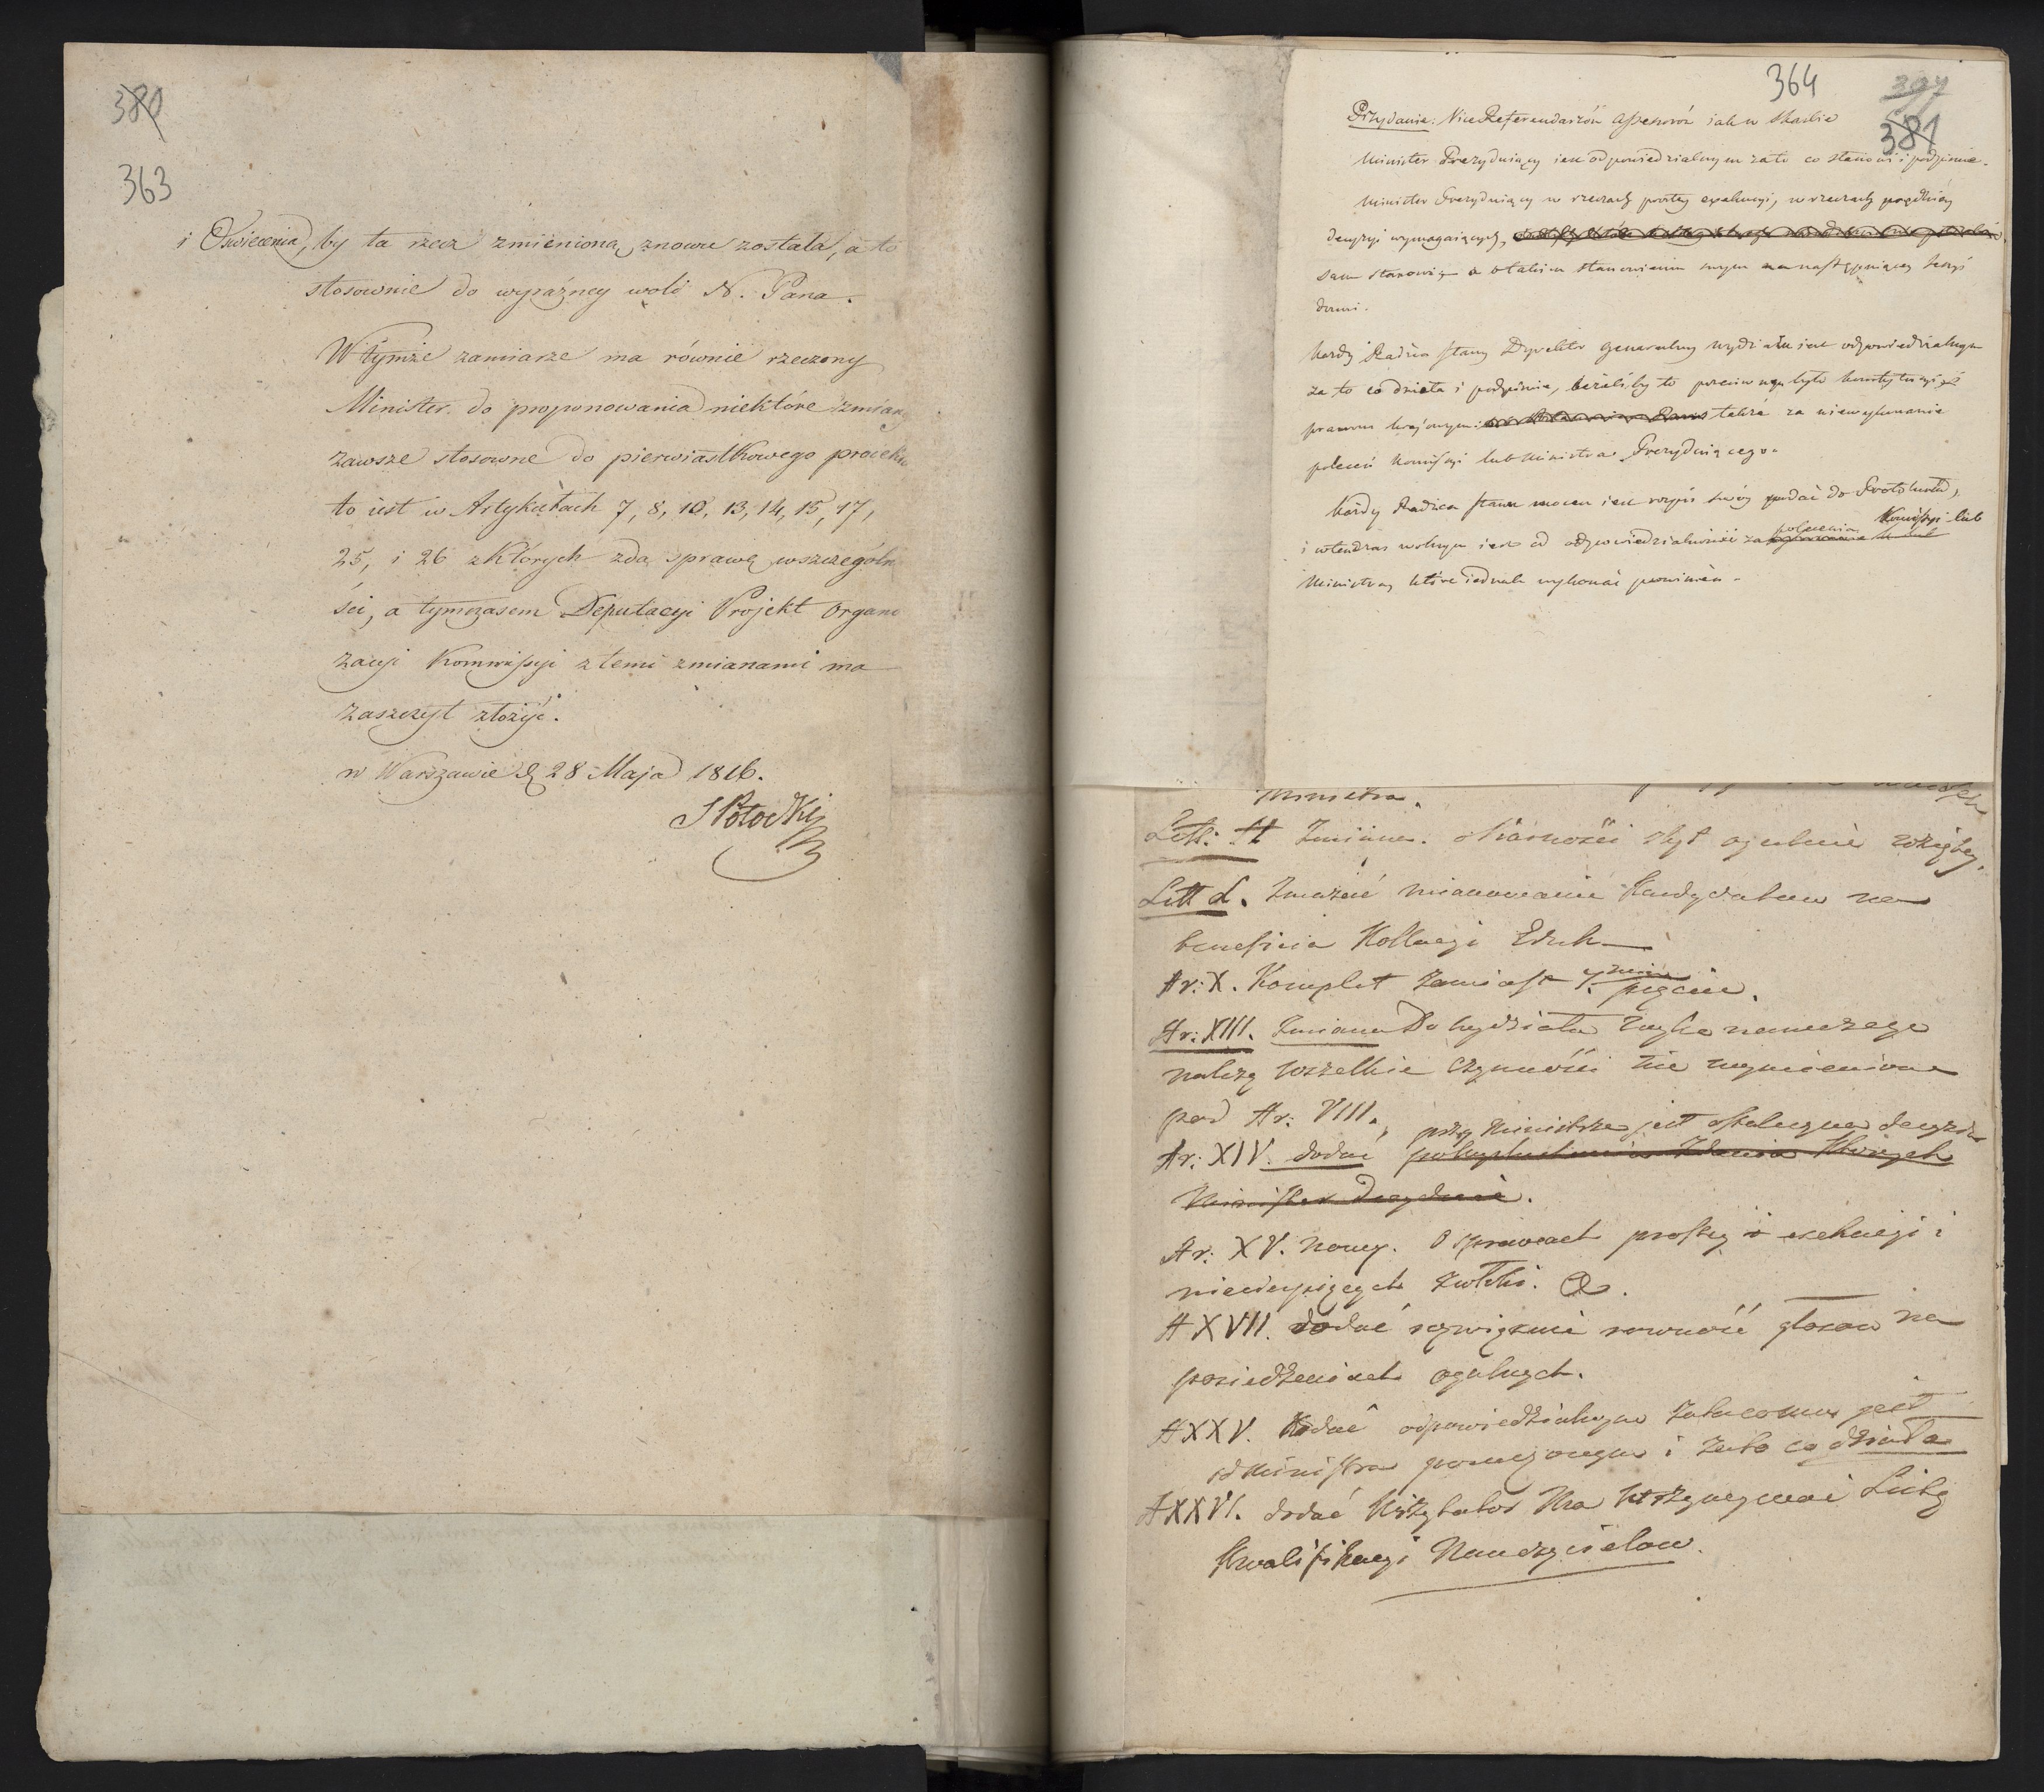 380
363
i Oświecenia, by ta rzecz zmienioną znowu została, a to
stosownie do wyraźney woli N. Pana.
W tymże zamiarze ma równie rzeczony
Minister do proponowania niektóre zmiany
zawsze stosowne do pierwiastkowego proiektu
to iest w Artykułach 7, 8, 10, 13, 14, 15, 17,
25, i 26 z których zda sprawę w szczególn
ści, a tymczasem Deputacyi Projekt Organi
zacyi Kommissyi z temi zmianami ma
zaszczyt złożyć.
w Warszawie d. 28 Maja 1816.
S Potocki
364
397
381
Przydanie: Vice Referendarzów Assessorów iak w Skarbie
Minister Prezyduiący iest odpowiedzialnym za to co stanowi i podpisuie.
Minister Prezyduiący w rzeczach prostey exekucyi, w rzeczach prędkiey
decyzyi wymagaiących,
sam stanowi a o takim stanowieniu swym na następuiącey Sessyi
donosi.
Każdy Radzca Stanu Dyrektor Generalny wydziału iest odpowiedzialnym
za to co działa i podpisuie, ieżeliby to przeciwnym było konstytucyi i
prawom kraiowym: także za niewykonanie
poleceń Komissyi lub Ministra Prezyduiącego.
Każdy Radzca Stanu mocen iest wopis swóy podać do Protokułu,
i wtenczas wolnym iest od odpowiedzialności za polecenia Komissyi lub
Ministra, które iednak wykonać powinien.
Ministra.
Litt: H Zmiana. o Karności zbyt ogulnie wziętey.
Litt L. Zmazać mianowanie Kandydatow na
beneficia Kollacyi Eduk
Ar: X. Komplet zamiast 7. pięciu.
Ar: XIII. Zmiana Do wydziału nauczego
należą wszelkie czynności nie wymienione
pod Ar: VIII.
przy Ministrze jest decyzia
Ar: XIV. dodać po wysłuchaniu Zdania Których
Minister decyduie.
Ar: XV. nowy. O sprawach prostey exekucyi i
niecierpiących zwłoki.
A XVII. dodać rozwiązuie rowność głosow na
posiedzeniach ogulnych.
A XXV. dodać odpowiedzialnym za to co mu jest
od Ministra poruczonym i za to co działa
A XXVI. dodać Wizytator Ma utrzymywać Listę
Kwalifikacyi Nauczycielow.